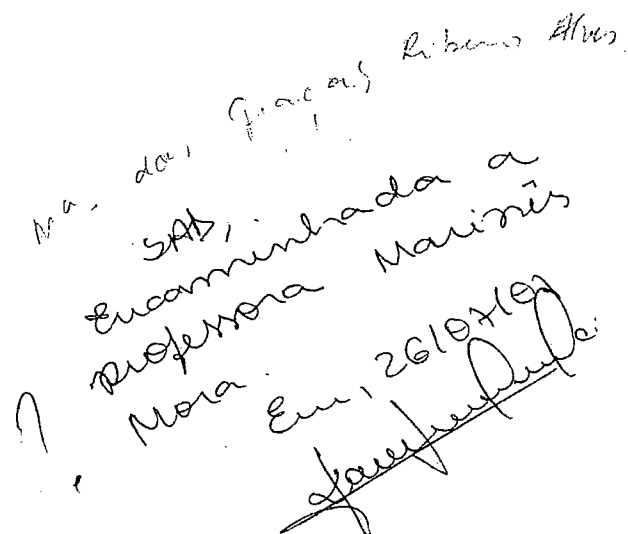 Mª. das Graças Ribeiro Alves
SAD,
Encaminhada a
professora Marinês
Mora.
Em, 26/07/07